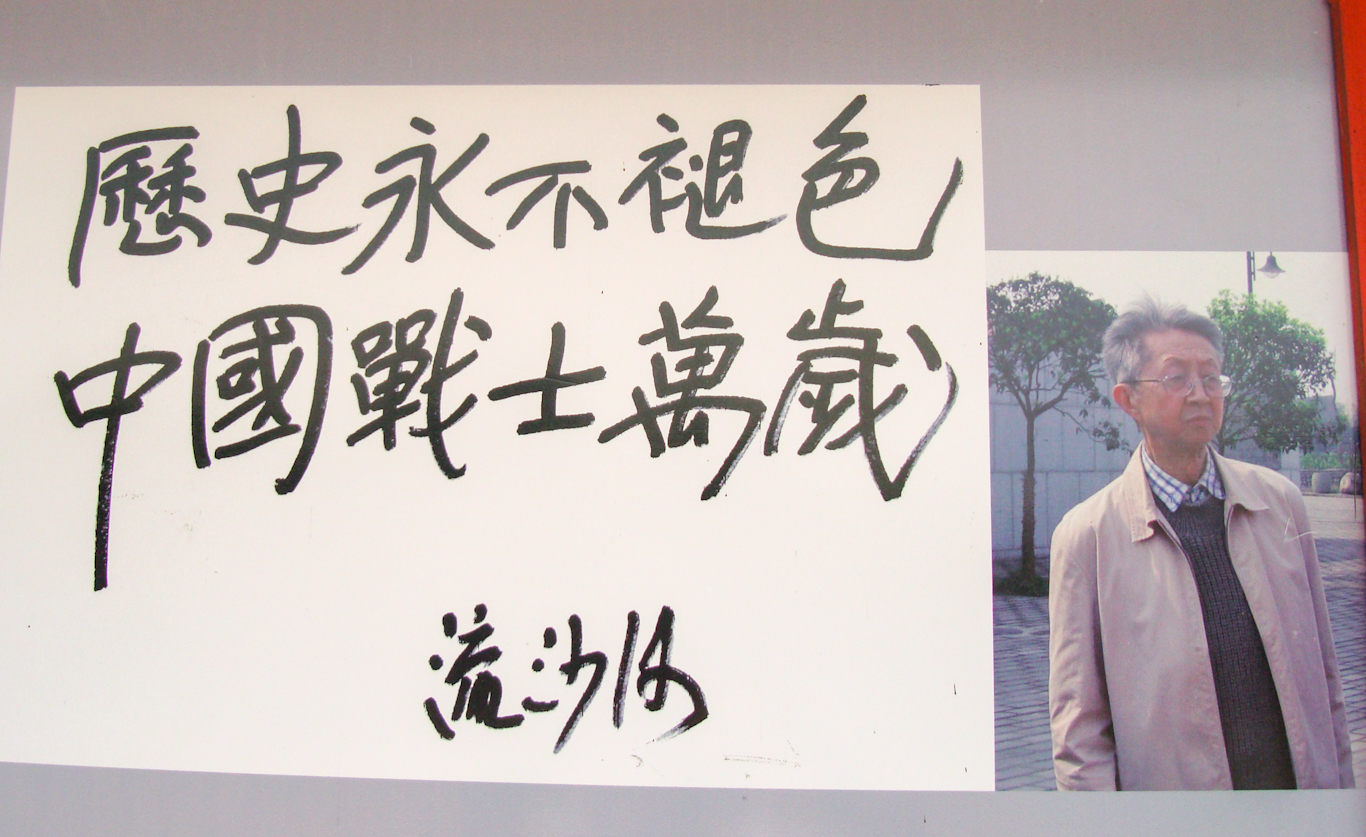 歷史永不褪色
中國戰士萬歲
流沙河